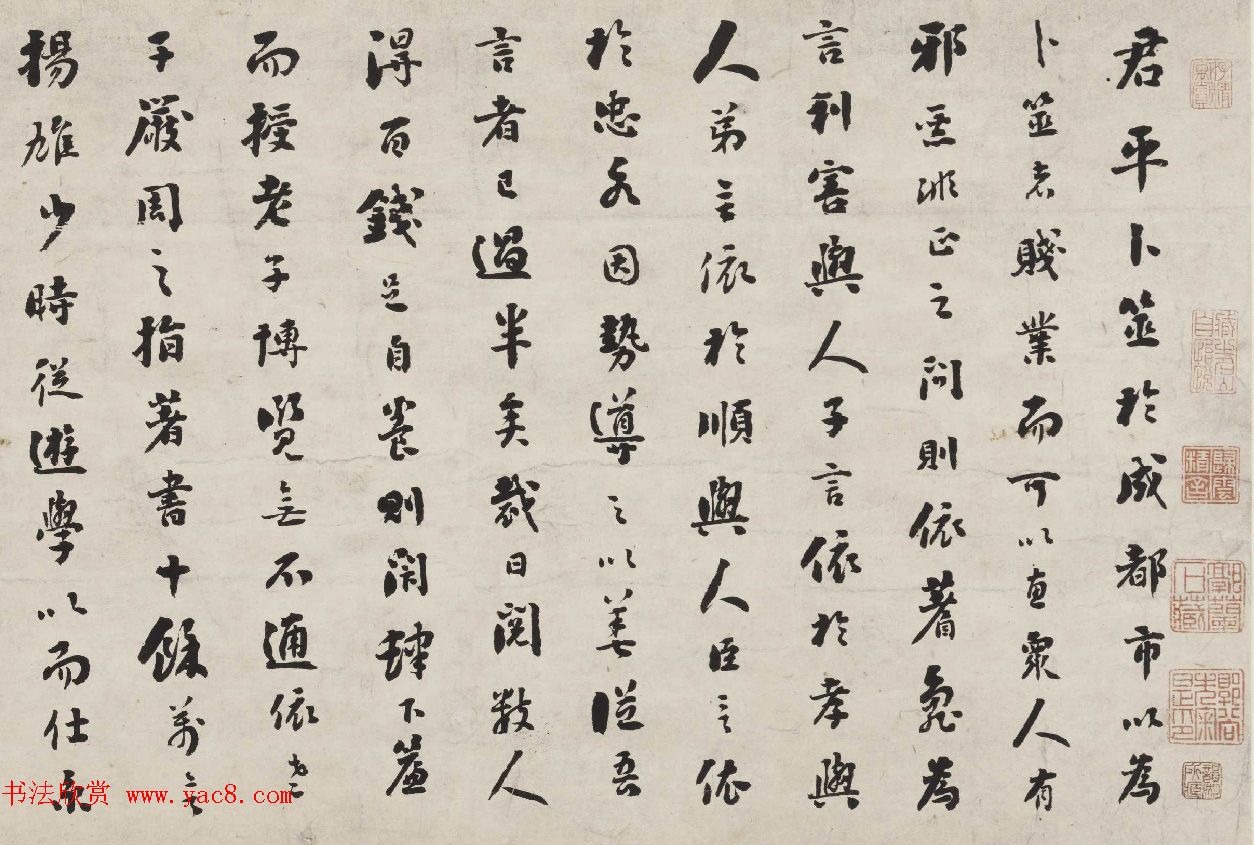 君平卜筮於成都市以為
卜筮者賤業而可以惠衆人有
邪惡非正之問則依蓍龜為
言利害與人子言依於孝與
人弟言依於順與人臣言依
於忠各因勢導之以善從吾
言者已過半矣裁日閱數人
得百錢足自養則閉肆下簾
而授老子博覽無不通依老
子嚴周之指著書十餘萬言
揚雄少時從遊學以而仕京
书法欣赏 www.yac8.com